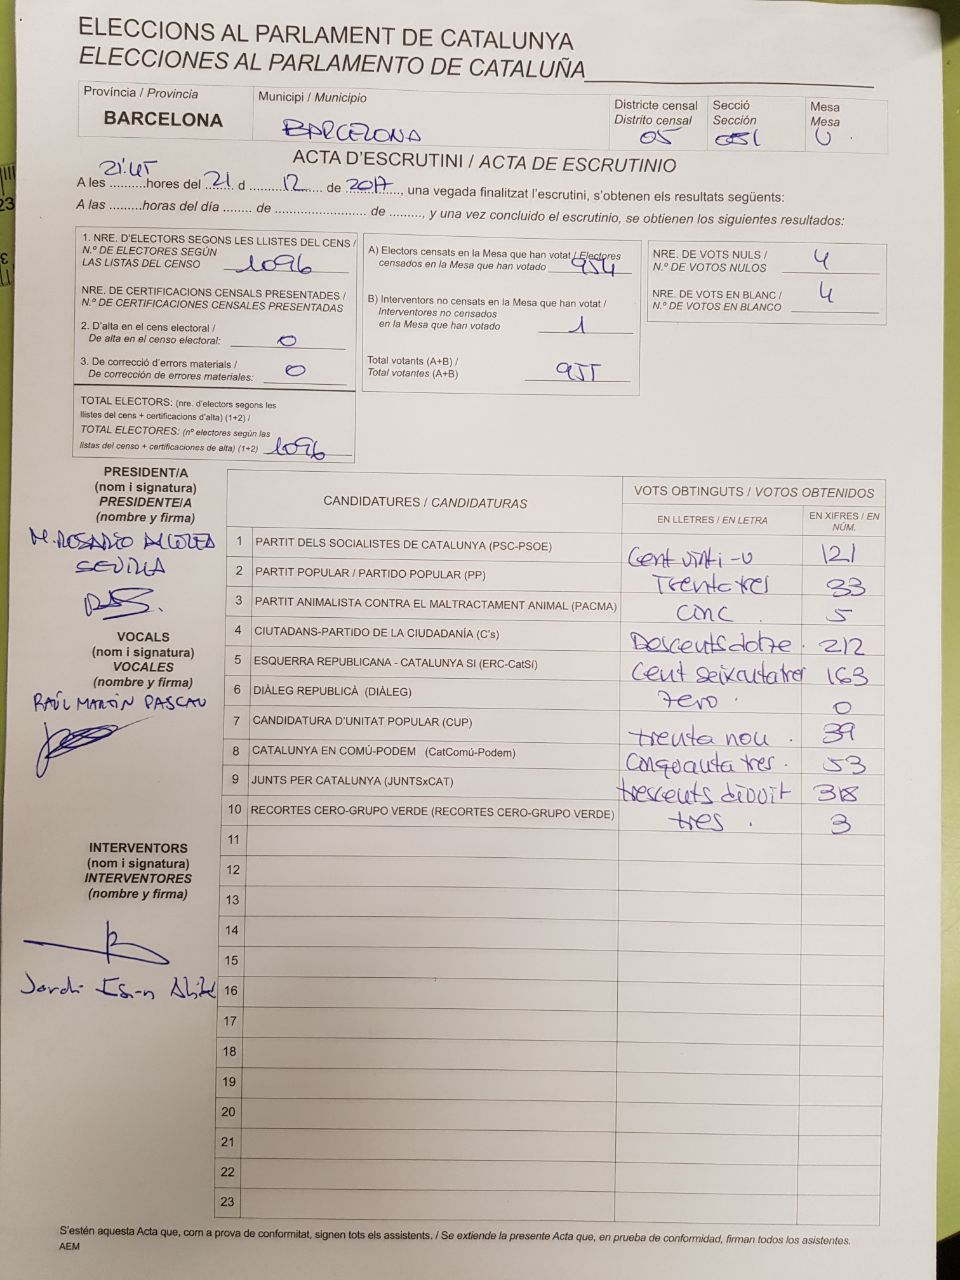 ELECCIONS AL PARLAMENT DE CATALUNYA
ELECCIONES AL PARLAMENTO DE CATALUÑA
Província / Provincia
BARCELONA
Municipi / Municipio
BARCELONA
Districte censal
Distrito censal
05
Secció
Sección
051
Mesa
Mesa
U
ACTA D'ESCRUTINI / ACTA DE ESCRUTINIO
21:45
A les ..........hores del 21 d 12 de 2017, una vegada finalitzat l'escrutini, s'obtenen els resultats següents:
A las .........horas del día ........ de ........................... de ........., y una vez concluido el escrutinio, se obtienen los siguientes resultados:
1. NRE. D'ELECTORS SEGONS LES LLISTES DEL CENS /
N.º DE ELECTORES SEGÚN
LAS LISTAS DEL CENSO 1096
NRE. DE CERTIFICACIONS CENSALS PRESENTADES /
N.º DE CERTIFICACIONES CENSALES PRESENTADAS
2. D'alta en el cens electoral /
De alta en el censo electoral: 0
3. De correcció d'errors materials /
De corrección de errores materiales: 0
TOTAL ELECTORS: (nre. d'electors segons les
llistes del cens + certificacions d'alta) (1+2) /
TOTAL ELECTORES: (nº electores según las
listas del censo + certificaciones de alta) (1+2) 1096
A) Electors censats en la Mesa que han votat / Electores
censados en la Mesa que han votado 954
B) Interventors no censats en la Mesa que han votat /
Interventores no censados
en la Mesa que han votado 1
Total votants (A+B) /
Total votantes (A+B) 955
NRE. DE VOTS NULS /
N.º DE VOTOS NULOS 4
NRE. DE VOTS EN BLANC /
N.º DE VOTOS EN BLANCO 4
PRESIDENT/A
(nom i signatura)
PRESIDENTE/A
(nombre y firma)
M. ROSARIO ALCOLEA
SEVILLA
VOCALS
(nom i signatura)
VOCALES
(nombre y firma)
RAÚL MARTÍN PASCAU
INTERVENTORS
(nom i signatura)
INTERVENTORES
(nombre y firma)
Jordi
CANDIDATURES / CANDIDATURAS
VOTS OBTINGUTS / VOTOS OBTENIDOS
EN LLETRES / EN LETRA
EN XIFRES / EN NÚM.
1 PARTIT DELS SOCIALISTES DE CATALUNYA (PSC-PSOE) Cent vinti-u 121
2 PARTIT POPULAR / PARTIDO POPULAR (PP) Trenta tres 33
3 PARTIT ANIMALISTA CONTRA EL MALTRACTAMENT ANIMAL (PACMA) cinc 5
4 CIUTADANS-PARTIDO DE LA CIUDADANÍA (C's) Doscents dotze. 212
5 ESQUERRA REPUBLICANA - CATALUNYA SI (ERC-CatSí) Cent seixanta tres 163
6 DIÀLEG REPUBLICÀ (DIÀLEG) Zero. 0
7 CANDIDATURA D'UNITAT POPULAR (CUP) trenta nou. 39
8 CATALUNYA EN COMÚ-PODEM (CatComú-Podem) Cinquanta tres. 53
9 JUNTS PER CATALUNYA (JUNTSxCAT) trescents divuit 318
10 RECORTES CERO-GRUPO VERDE (RECORTES CERO-GRUPO VERDE) tres. 3
11
12
13
14
15
16
17
18
19
20
21
22
23
S'estén aquesta Acta que, com a prova de conformitat, signen tots els assistents. / Se extiende la presente Acta que, en prueba de conformidad, firman todos los asistentes.
AEM